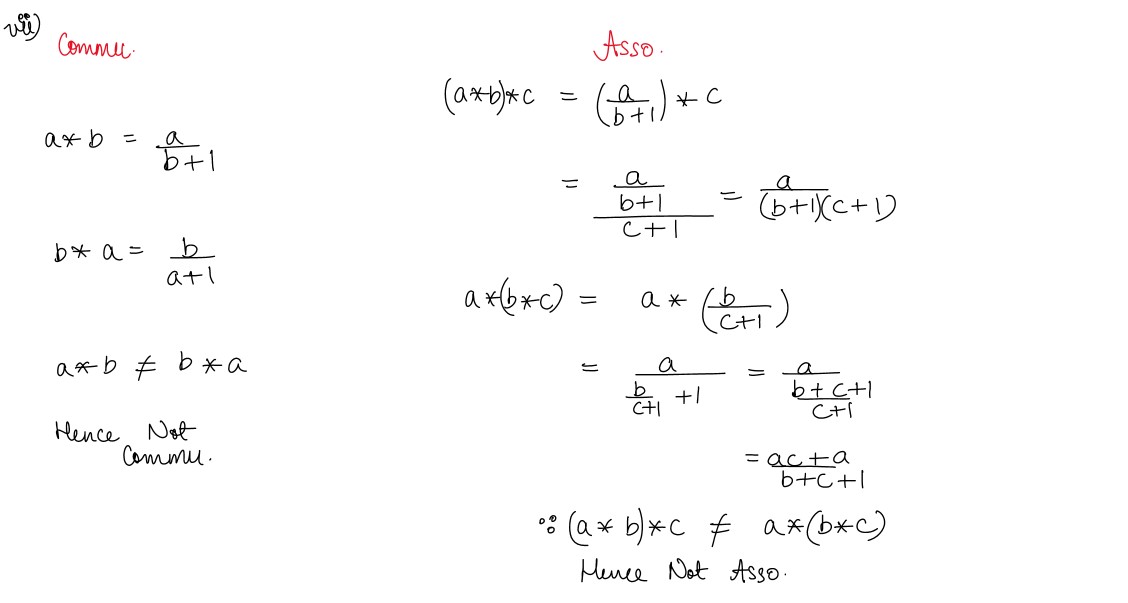 vii)
Commu.
a * b = a/(b+1)
b * a = b/(a+1)
a * b ≠ b * a
Hence Not
Commu.
Asso.
(a*b)*c = (a/(b+1)) * c
= (a/(b+1))/(c+1) = a/((b+1)(c+1))
a*(b*c) = a * (b/(c+1))
= a/(b/(c+1) + 1) = a/((b+c+1)/(c+1))
= (ac+a)/(b+c+1)
∵ (a * b)*c ≠ a*(b*c)
Hence Not Asso.